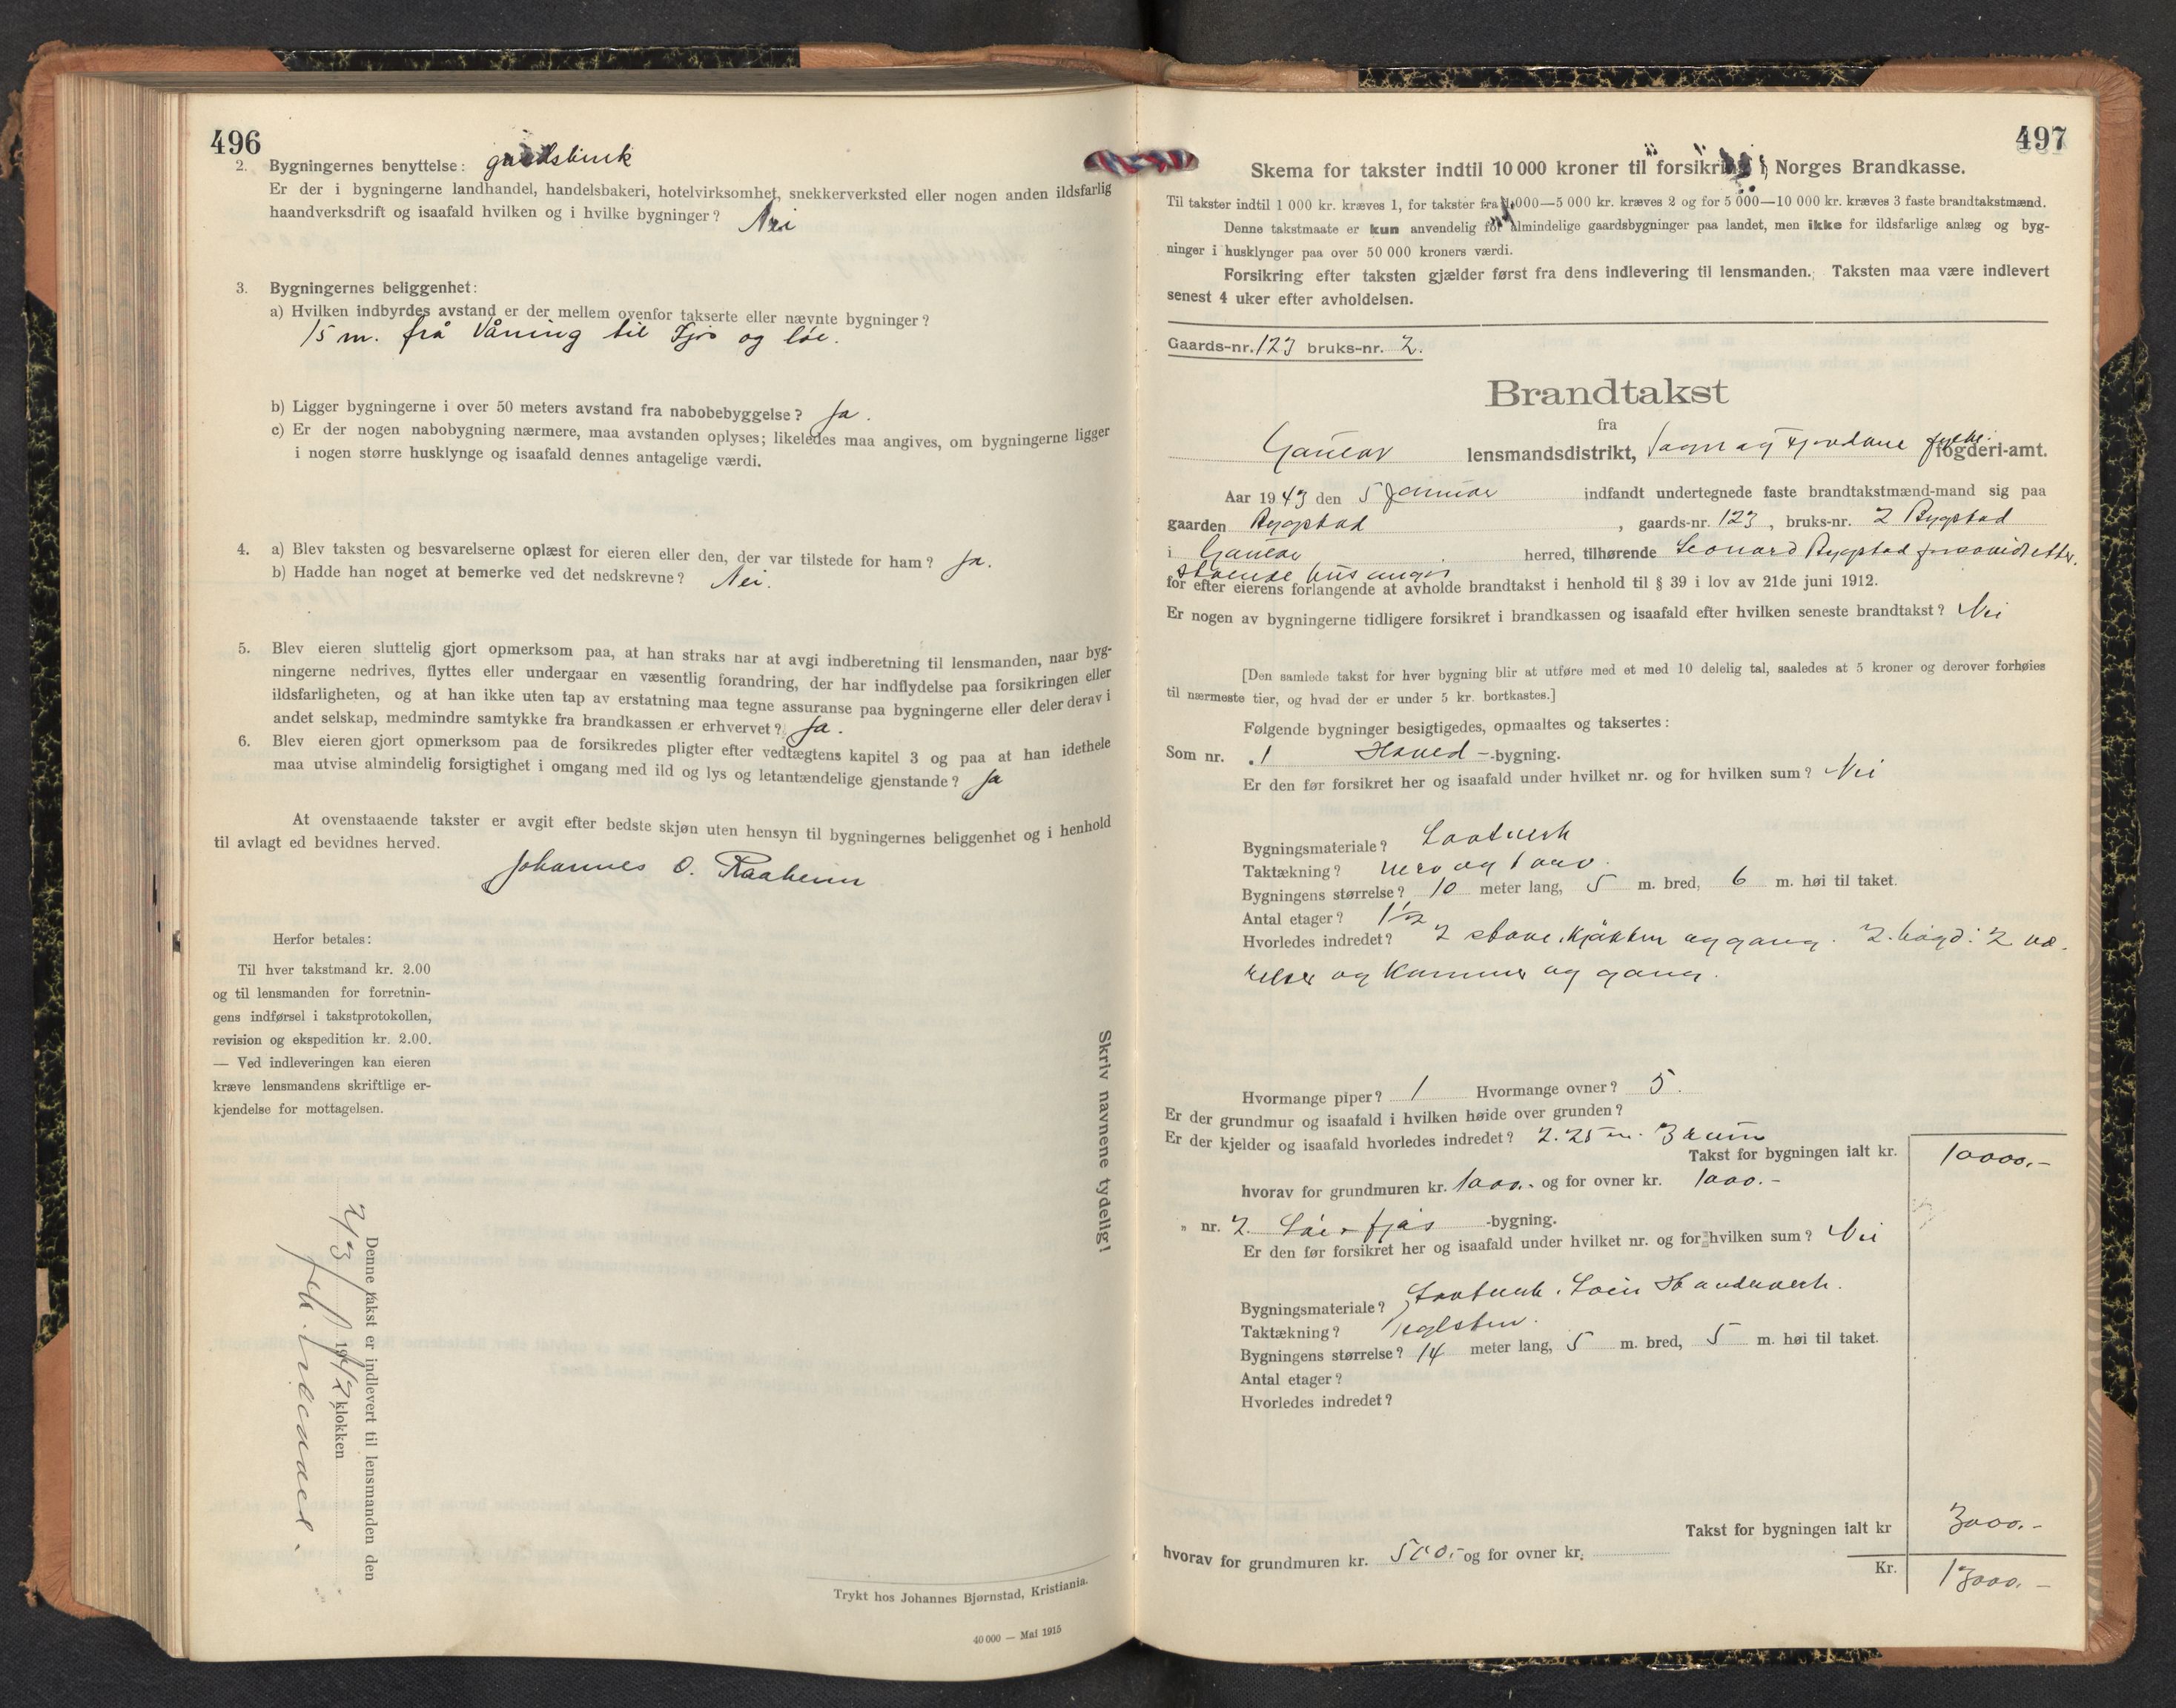 496
2. Bygningernes benyttelse: gardsbruk
Er der i bygningerne landhandel, handelsbakeri, hotelvirksomhet, snekkerverksted eller nogen anden ildsfarlig
haandverksdrift og isaafald hvilken og i hvilke bygninger? Nei
3. Bygningernes beliggenhet:
a) Hvilken indbyrdes avstand er der mellem ovenfor takserte eller nævnte bygninger?
15 m. frå Våning til Fjøs og löe.
b) Ligger bygningerne i over 50 meters avstand fra nabobebyggelse? Ja.
c) Er der nogen nabobygning nærmere, maa avstanden oplyses; likeledes maa angives, om bygningerne ligger
i nogen større husklynge og isaafald dennes antagelige værdi.
4. a) Blev taksten og besvarelserne oplæst for eieren eller den, der var tilstede for ham? Ja.
b) Hadde han noget at bemerke ved det nedskrevne? Nei.
5. Blev eieren sluttelig gjort opmerksom paa, at han straks har at avgi indberetning til lensmanden, naar byg-
ningerne nedrives, flyttes eller undergaar en væsentlig forandring, der har indflydelse paa forsikringen eller
ildsfarligheten, og at han ikke uten tap av erstatning maa tegne assuranse paa bygningerne eller deler derav i
andet selskap, medmindre samtykke fra brandkassen er erhvervet? Ja.
6. Blev eieren gjort opmerksom paa de forsikredes pligter efter vedtægtens kapitel 3 og paa at han idethele
maa utvise almindelig forsigtighet i omgang med ild og lys og letantændelige gjenstande? Ja
At ovenstaaende takster er avgit efter bedste skjøn uten hensyn til bygningernes beliggenhet og i henhold
til avlagt ed bevidnes herved.
Johannes O. Raaheim
Herfor betales:
Til hver takstmand kr. 2.00
og til lensmanden for forretnin-
gens indførsel i takstprotokollen,
revision og ekspedition kr. 2.00.
— Ved indleveringen kan eieren
kræve lensmandens skriftlige er-
kjendelse for mottagelsen.
Denne takst er indlevert til lensmanden den
2/3 19 klokken
Skriv navnene tydelig!
Trykt hos Johannes Bjørnstad, Kristiania.
40 000 — Mai 1915
497
Skema for takster indtil 10 000 kroner til forsikring i Norges Brandkasse.
Til takster indtil 1 000 kr. kræves 1, for takster fra 1 000—5 000 kr. kræves 2 og for 5 000—10 000 kr. kræves 3 faste brandtakstmænd.
Denne takstmaate er kun anvendelig for almindelige gaardsbygninger paa landet, men ikke for ildsfarlige anlæg og byg-
ninger i husklynger paa over 50 000 kroners værdi.
Forsikring efter taksten gjælder først fra dens indlevering til lensmanden. Taksten maa være indlevert
senest 4 uker efter avholdelsen.
Gaards-nr. 123 bruks-nr. 2.
Brandtakst
fra
Gaular lensmandsdistrikt, Sogn og Fjordane fylke. fogderi-amt.
Aar 1943 den 5 Januar indfandt undertegnede faste brandtakstmænd-mand sig paa
gaarden Bygstad, gaards-nr. 123, bruks-nr. 2 Bygstad
i Gaular herred, tilhørende Leonard Bygstad
staaende hus
for efter eierens forlangende at avholde brandtakst i henhold til § 39 i lov av 21de juni 1912.
Er nogen av bygningerne tidligere forsikret i brandkassen og isaafald efter hvilken seneste brandtakst? Nei
[Den samlede takst for hver bygning blir at utføre med et med 10 delelig tal, saaledes at 5 kroner og derover forhøies
til nærmeste tier, og hvad der er under 5 kr. bortkastes.]
Følgende bygninger besigtigedes, opmaaltes og taksertes:
Som nr. 1 Hoved-bygning.
Er den før forsikret her og isaafald under hvilket nr. og for hvilken sum? Nei
Bygningsmateriale? Laftverk
Taktækning? never og torv.
Bygningens størrelse? 10 meter lang, 5 m. bred, 6 m. høi til taket.
Antal etager? 1 1/2
Hvorledes indredet? 2 stove, kjøkken og gang. 2. høgd: 2 væ-
relser og kammer og gang.
Hvormange piper? 1 Hvormange ovner? 5.
Er der grundmur og isaafald i hvilken høide over grunden?
Er der kjelder og isaafald hvorledes indredet? 2.25 m. 3 rum
Takst for bygningen ialt kr. 10000.-
hvorav for grundmuren kr. 1000.- og for ovner kr. 1000.-
„ nr. 2. Löe + fjös -bygning.
Er den før forsikret her og isaafald under hvilket nr. og for hvilken sum? Nei
Bygningsmateriale? Laftverk. Löen
Taktækning? Teglsten.
Bygningens størrelse? 14 meter lang, 5 m. bred, 5 m. høi til taket.
Antal etager?
Hvorledes indredet?
Takst for bygningen ialt kr 3000.-
hvorav for grundmuren kr. 500.- og for ovner kr.
Kr. 13000.-